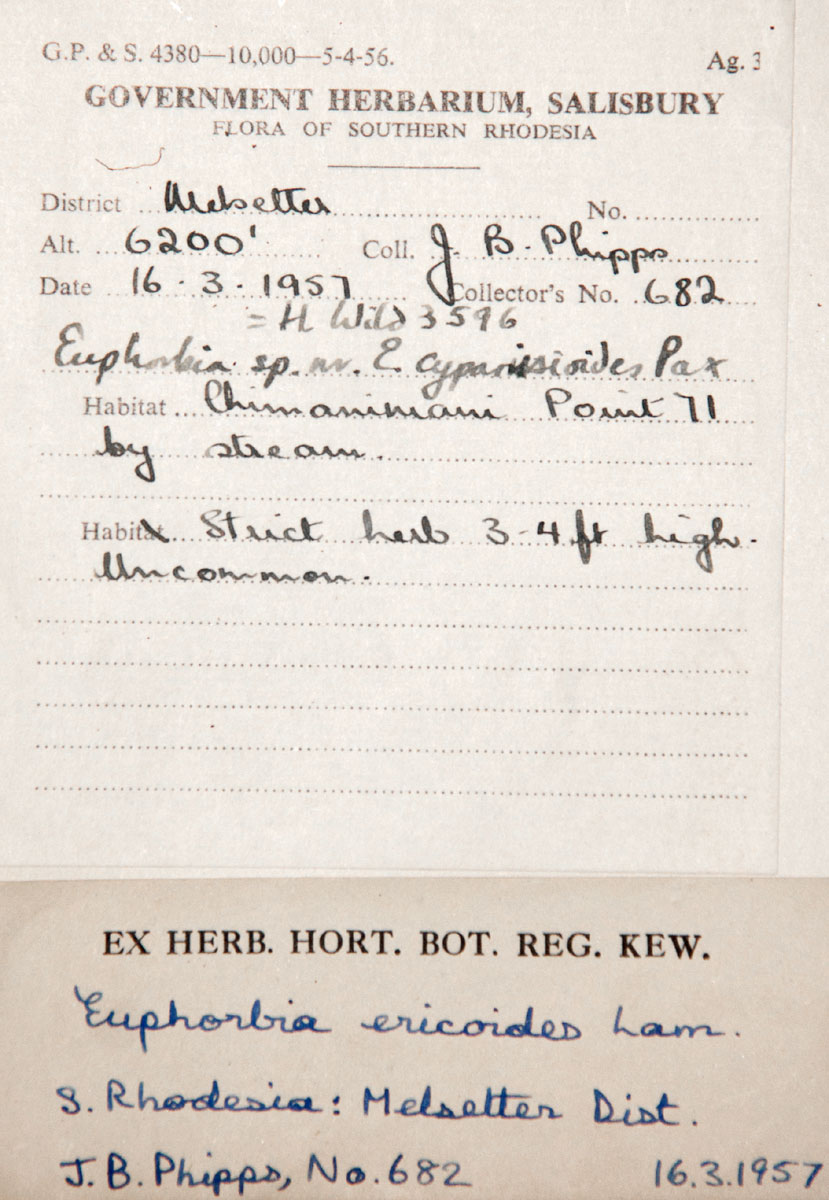 G.P. & S. 4380—10,000—5-4-56. Ag. 3
GOVERNMENT HERBARIUM, SALISBURY
FLORA OF SOUTHERN RHODESIA
District Melsetter No.
Alt. 6200' Coll. J. B. Phipps
Date 16.3.1957 Collector's No. 682
= H Wild 3596
Euphorbia sp. nr. E cyparissioides Pax
Habitat Chimanimani Point 71
by stream.
Habitat Strict herb 3-4 ft high.
Uncommon.
EX HERB. HORT. BOT. REG. KEW.
Euphorbia ericoides Lam.
S. Rhodesia: Melsetter Dist.
J.B. Phipps, No. 682 16.3.1957